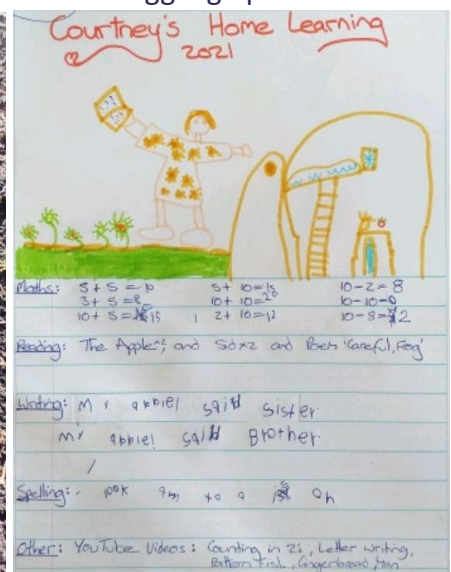 Courtney's Home Learning
2021
Maths: 5 + 5 = 10 5 + 10 = 15 10 - 2 = 8
3 + 5 = 8 10 + 10 = 20 10 - 10 = 0
10 + 5 = 15 2 + 10 = 12 10 - 8 = 2
Reading: The Apple and and Poem 'Careful, Frog'
Writing: My appiel said sister.
My appiel said Brother.
Spelling: am to a on
Other: YouTube Videos: Counting in 2s, Letter writing,
Pattern Fish, Gingerbread Man